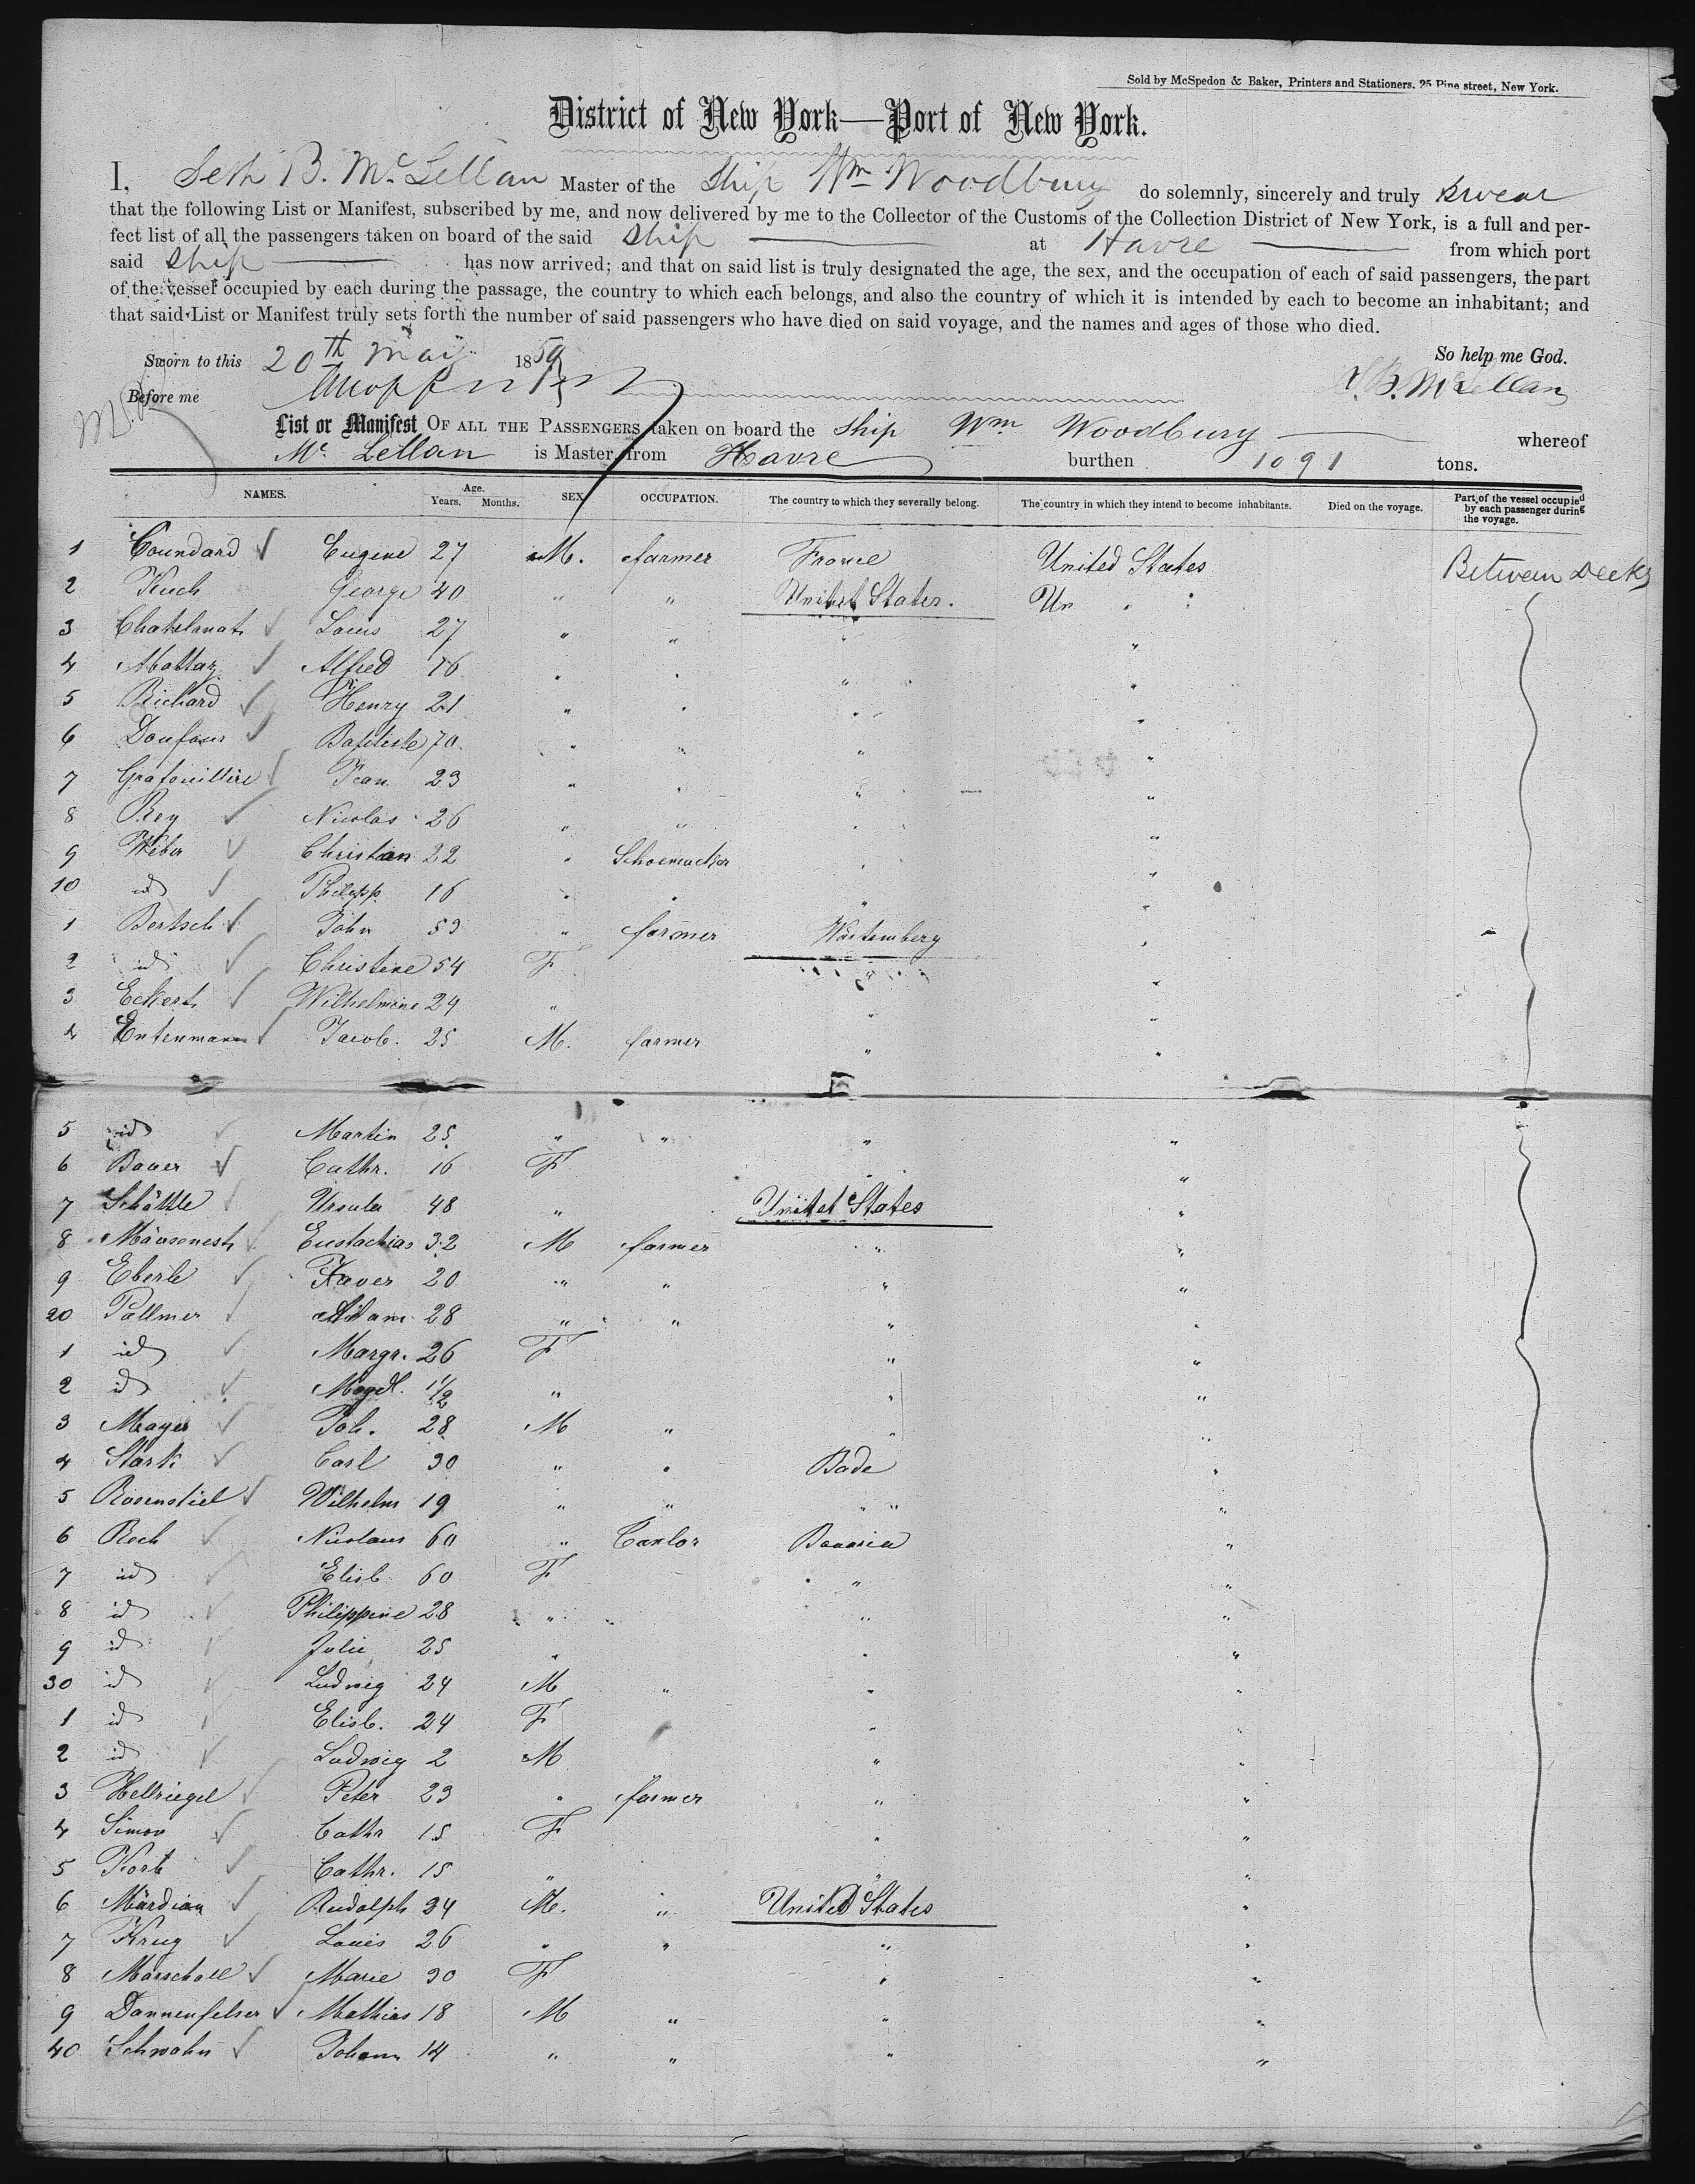 Sold by McSpedon & Baker, Printers and Stationers. 25 Pine street, New York.
District of New York—Port of New York.
I, Seth B. McLellan Master of the Ship Wm Woodbury do solemnly, sincerely and truly swear
that the following List or Manifest, subscribed by me, and now delivered by me to the Collector of the Customs of the Collection District of New York, is a full and per-
fect list of all the passengers taken on board of the said Ship at Havre from which port
said Ship has now arrived; and that on said list is truly designated the age, the sex, and the occupation of each of said passengers, the part
of the vessel occupied by each during the passage, the country to which each belongs, and also the country of which it is intended by each to become an inhabitant; and
that said List or Manifest truly sets forth the number of said passengers who have died on said voyage, and the names and ages of those who died.
Sworn to this 20th May 1859 So help me God.
Before me S. B. McLellan
List or Manifest OF ALL THE PASSENGERS taken on board the Ship Wm Woodbury whereof
Mc Lellan is Master, from Havre burthen 1091 tons.
NAMES. Age. Years. Months. SEX. OCCUPATION. The country to which they severally belong. The country in which they intend to become inhabitants. Died on the voyage. Part of the vessel occupied by each passenger during the voyage.
1 Coundard Eugene 27 M. farmer France United States Between Decks
2 Kuch George 40 " " Unitet States. Un " "
3 Chatelanat Louis 27 " " " "
4 Mattaz Alfred 16 " " " "
5 Richard Henry 21 " " " "
6 Doufour Baptiste 70 " " " "
7 Grafouilliere Jean 23 " " " "
8 Rey Nicolas 26 " " " "
9 Weber Christian 22 " Schoemacker " "
10 id Philipp 16 " " " "
1 Bertsch John 53 " farmer Würtemberg "
2 id Christine 54 F " "
3 Eckert Wilhelmine 24 " " "
4 Entenmann Jacob. 25 M. farmer " "
5 id Martin 25 " " " "
6 Bauer Cathr. 16 F " "
7 Schättle Ursula 48 " Unitet States "
8 Mäusenest Eustachias 32 M farmer " "
9 Eberle Xaver 20 " " " "
20 Pallmer Adam 28 " " " "
1 id Margr. 26 F " "
2 id Magdl. 1 1/2 " " "
3 Mayer Joh. 28 M " " "
4 Stark Carl 30 " " Bade "
5 Rosenstiel Wilhelm 19 " " " "
6 Rech Nicolaus 60 " Tailor Bavaria "
7 id Elisb 60 F " "
8 id Philippine 28 " " "
9 id Julie 25 " " "
30 id Ludwig 24 M " " "
1 id Elisb. 24 F " "
2 id Ludwig 2 M " "
3 Hellriegel Peter 23 " farmer " "
4 Simon Cathr 15 F " "
5 Korb Cathr. 15 " " "
6 Mardian Rudolph 34 M. " United States "
7 Krug Louis 26 " " " "
8 Marschall Marie 30 F " "
9 Dannenfelser Mathias 18 M " " "
40 Schwahn Johann 14 " " " "